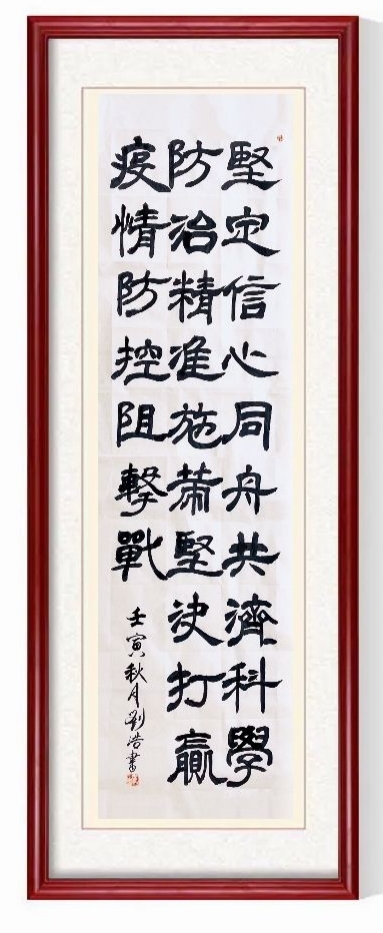 堅定信心同舟共濟科學
防治精准施策堅决打贏
疫情防控阻擊戰
壬寅秋月劉浩書